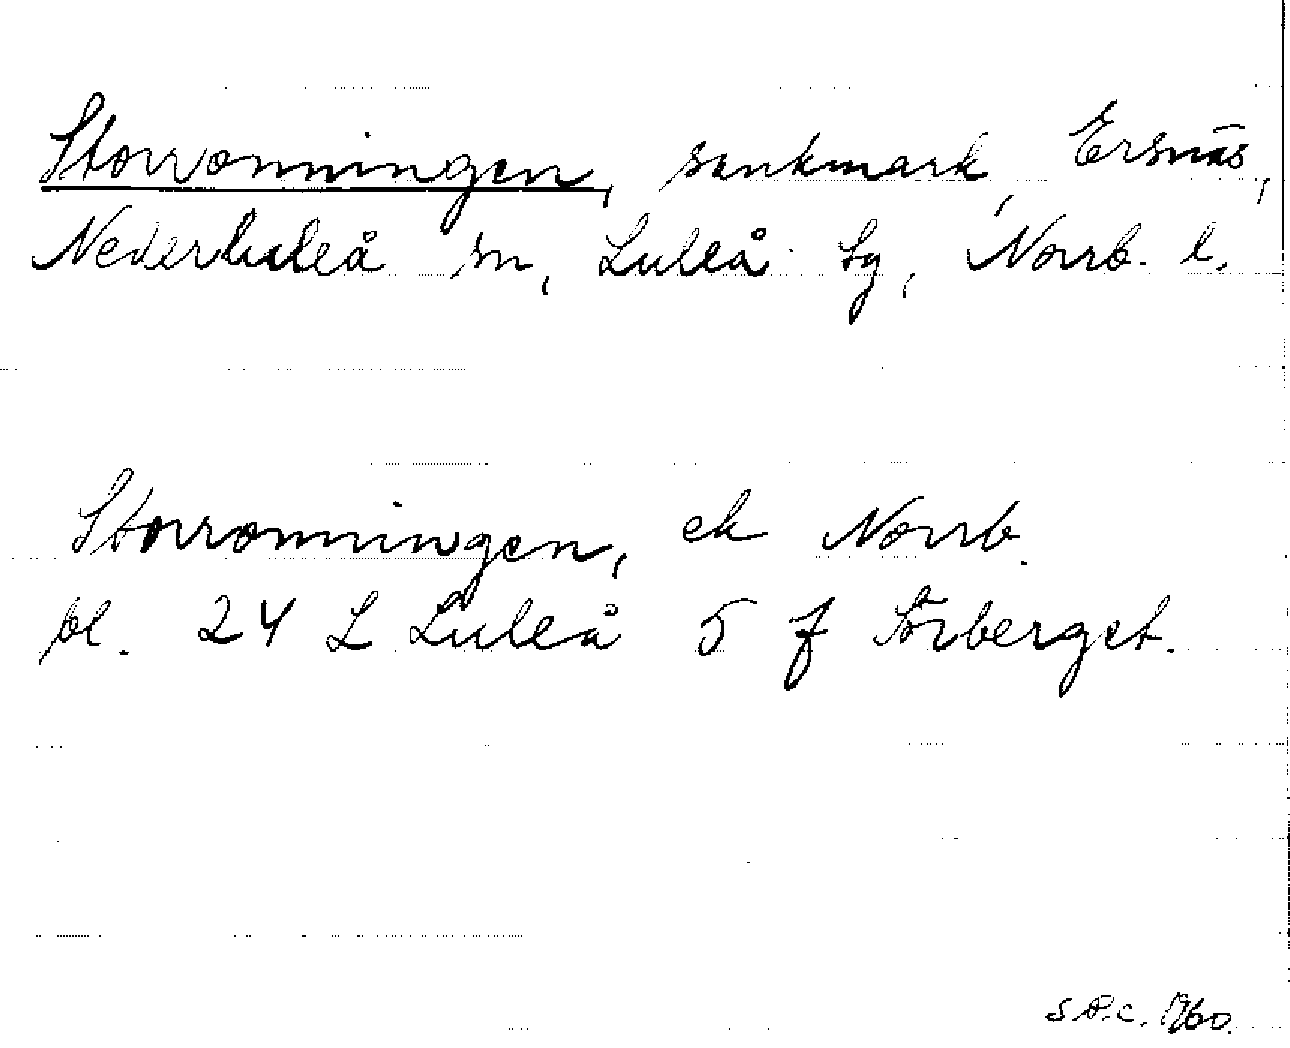 Storronningen, sankmark, Ersnäs,
Nederluleå sn, Luleå tg, Norrb. l.
Storronningen, ek Norrb.
bl. 24 L Luleå 5 f Sörberget.
1960.